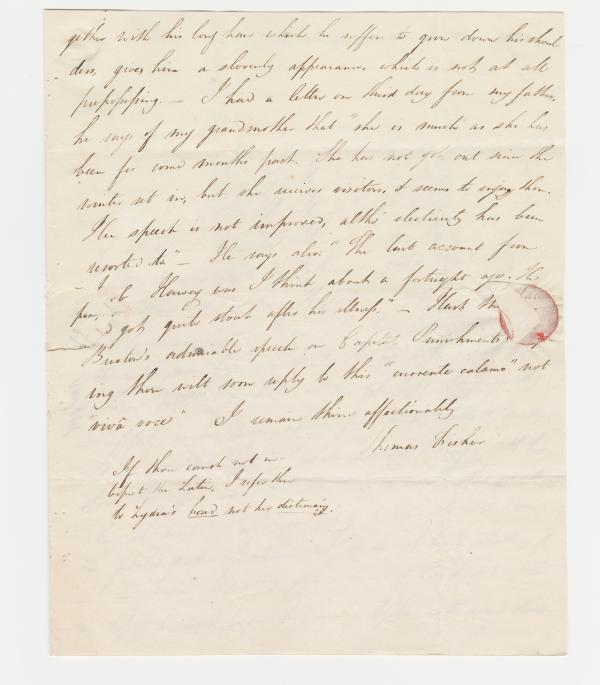 gether with his long hair which he suffers to grow down his shoul-
ders, gives him a slovenly appearance, which is not at all
prepossessing. — I had a letter on third day from my father,
he says of my grandmother that "she is much as she has
been for some months past. She has not got out since the
winter set in, but she receives visitors, & seems to enjoy them.
Her speech is not improved, altho' electricity has been
resorted to" — He says also "The last account from
ob Harvey was I think about a fortnight ago. He
got quite stout after his illness." — Hast thou
Buxton's admirable speech on Capital Punishments
ing thou wilt soon reply to this "currente calamo" not
"vivâ voce" I remain thine affectionately
Thomas Fisher
If thou canst not in-
terpret the Latin, I refer thee
to Lydia's head not her dictionary.